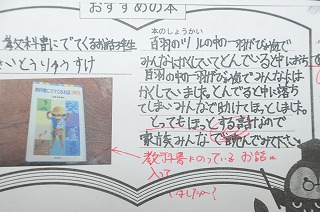 おすすめの本
教科書にでてくるお話3年生
さいとうりゅうすけ
本のしょうかい
百羽のツルの中の一羽がびょう気で
みんなはかくしていてとんでると中におち
百羽の中の一羽がびょう気でみんなには
かくしていました。とんでると中に落ち
てしまいみんなで助けてほっとしました。
とってもほっとする話なので
家族みんなで読んでみて下さい。
教科書にでてくるお話 3年生
教科書にのっている お話に
入って